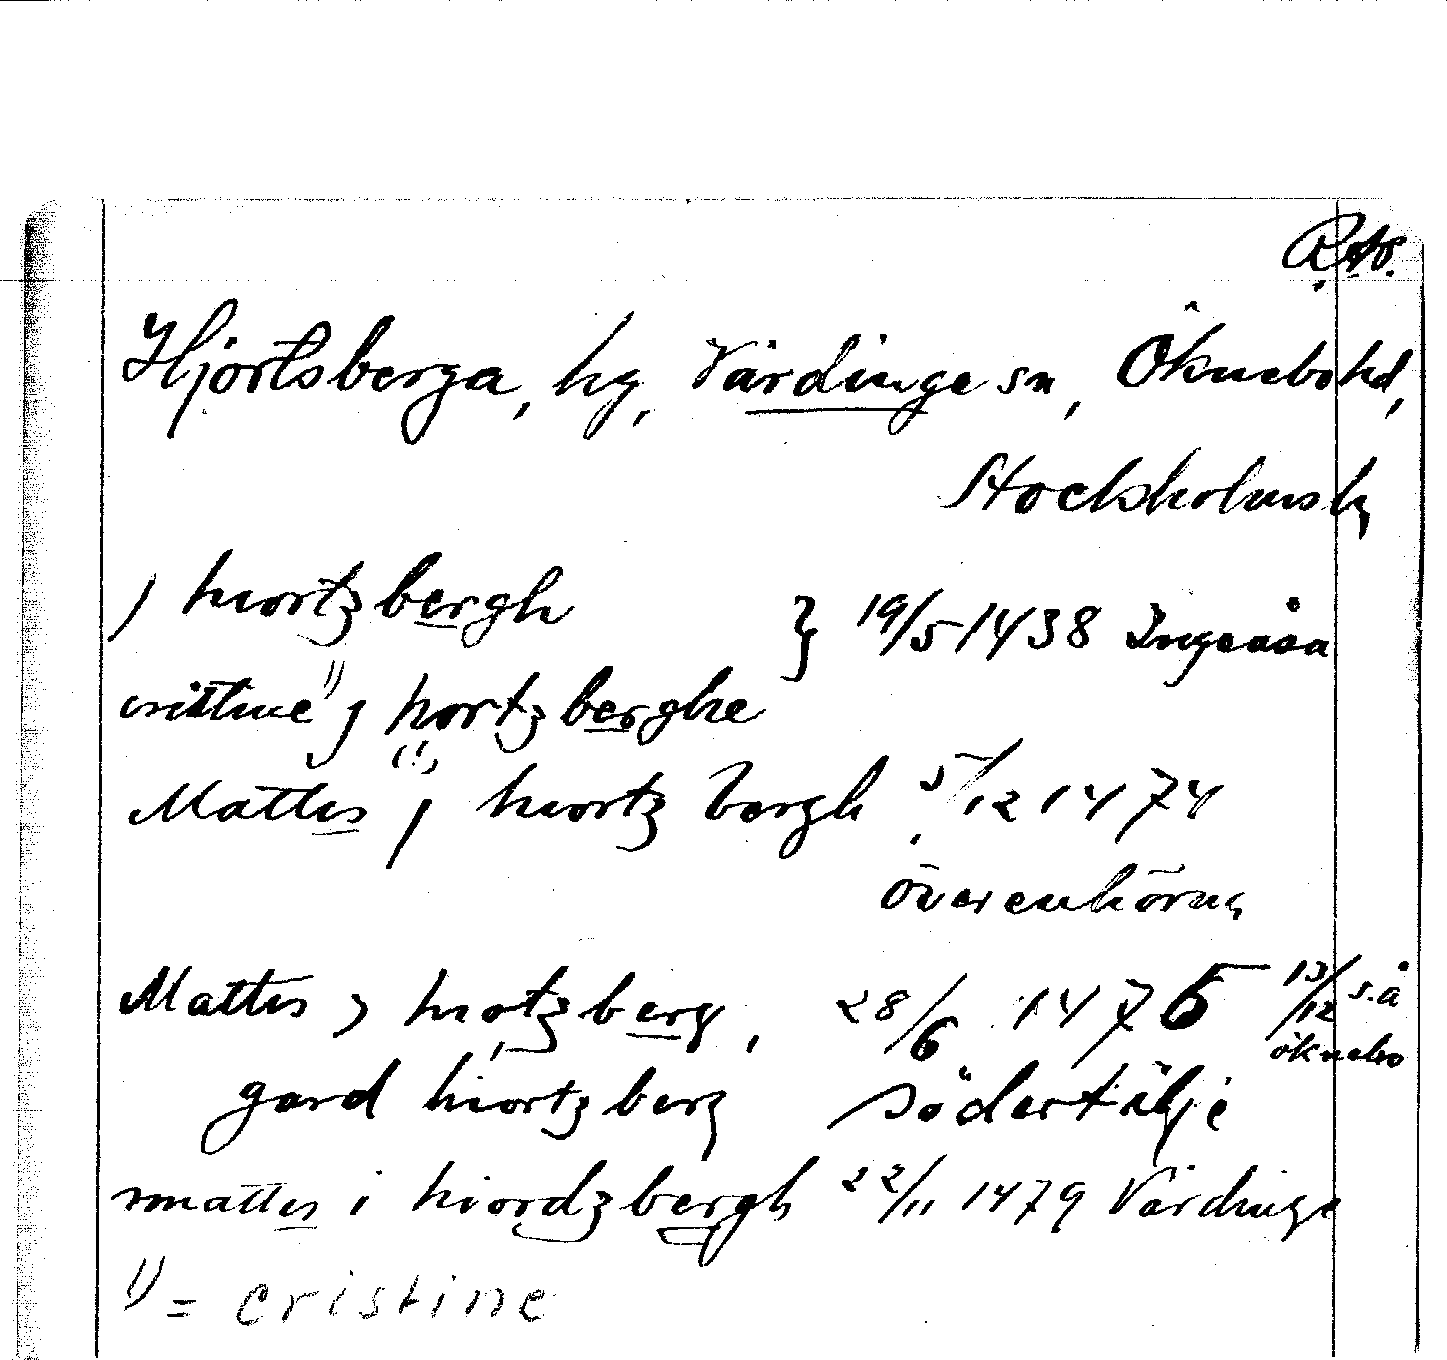 R.A.
Hjortsberga, hg, Vårdinge sn, Öknebo hd,
Stockholms l.
j hiortzbergh } 19/5 1438 Ingeåsa
cristine 1) j hortzberghe
(!)
Mattis j hiortz bergh 5/12 1474
överenhörna
Mattis j hiotzberg, 28/6 1476 13/12 s.å
öknebo
gard hiortzberg södertälje
mattis i hiordzbergh 22/11 1479 Vårdinge
1) = cristine